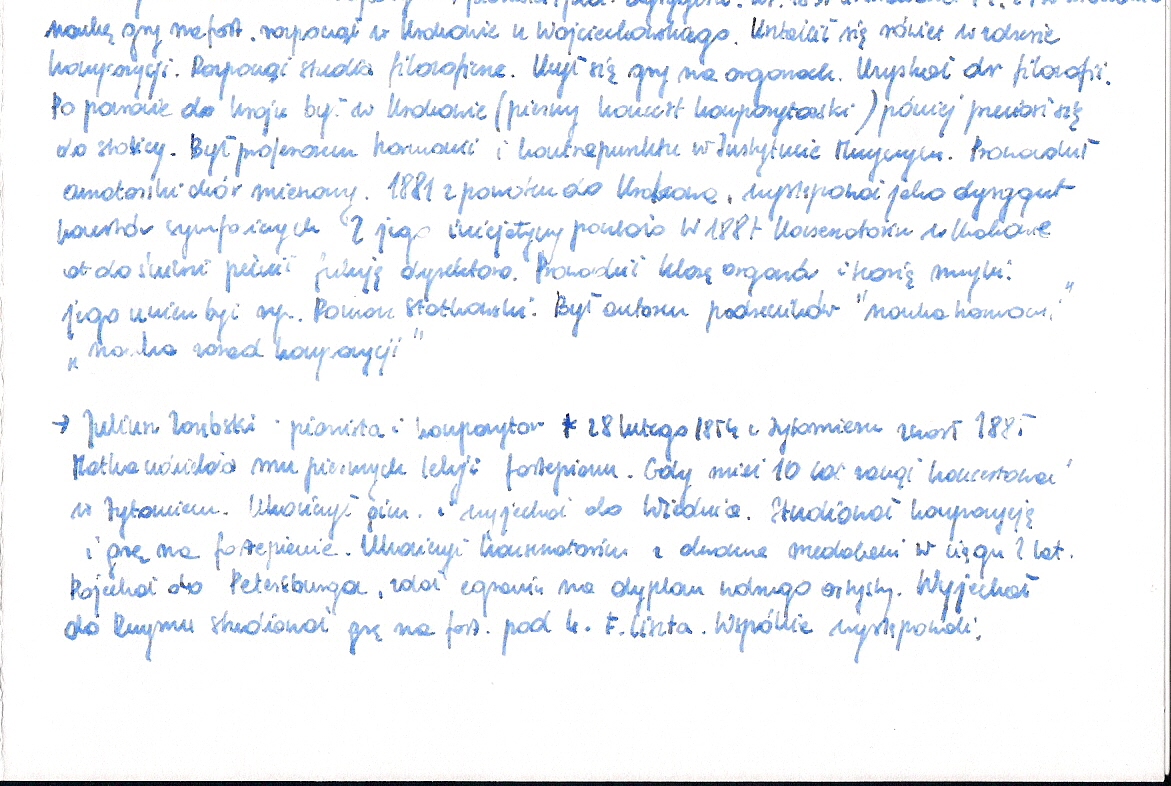 naukę gry na fort. rozpoczął w Krakowie u Wojciechowskiego. Kształcił się również w zakresie
kompozycji. Rozpoczął studia filozoficzne. Uczył się gry na organach. Uzyskał dr filozofii.
Po powrocie do kraju był w Krakowie (pierwszy koncert kompozytorski) później przeniósł się
do stolicy. Był profesorem harmonii i kontrapunktu w Instytucie Muzycznym. Prowadził
amatorski chór mieszany. 1881 z powrotem do Krakowa, występował jako dyrygent
koncertów symfonicznych Z jego inicjatywy powstało w 1887 Konserwatorium w Krakowie
aż do śmierci pełnił funkcję dyrektora. Prowadził klasę organów i teorię muzyki.
jego uczniem był np. Roman Statkowski. Był autorem podręczników "nauka harmonii"
"nauka zasad kompozycji"
→ Juliusz Zarębski - pianista i kompozytor * 28 lutego 1854 w Żytomierzu zmarł 1885
Matka udzielała mu pierwszych lekcji fortepianu. Gdy miał 10 lat zaczął koncertować
w Żytomierzu. Ukończył gim. i wyjechał do Wiednia. Studiował kompozycję
i grę na fortepianie. Ukończył Konserwatorium z dwoma medalami w ciągu 2 lat.
Pojechał do Petersburga, zdał egzamin na dyplom wolnego artysty. Wyjechał
do Rzymu studiował grę na fort. pod k. F. Liszta. Wspólnie występowali.